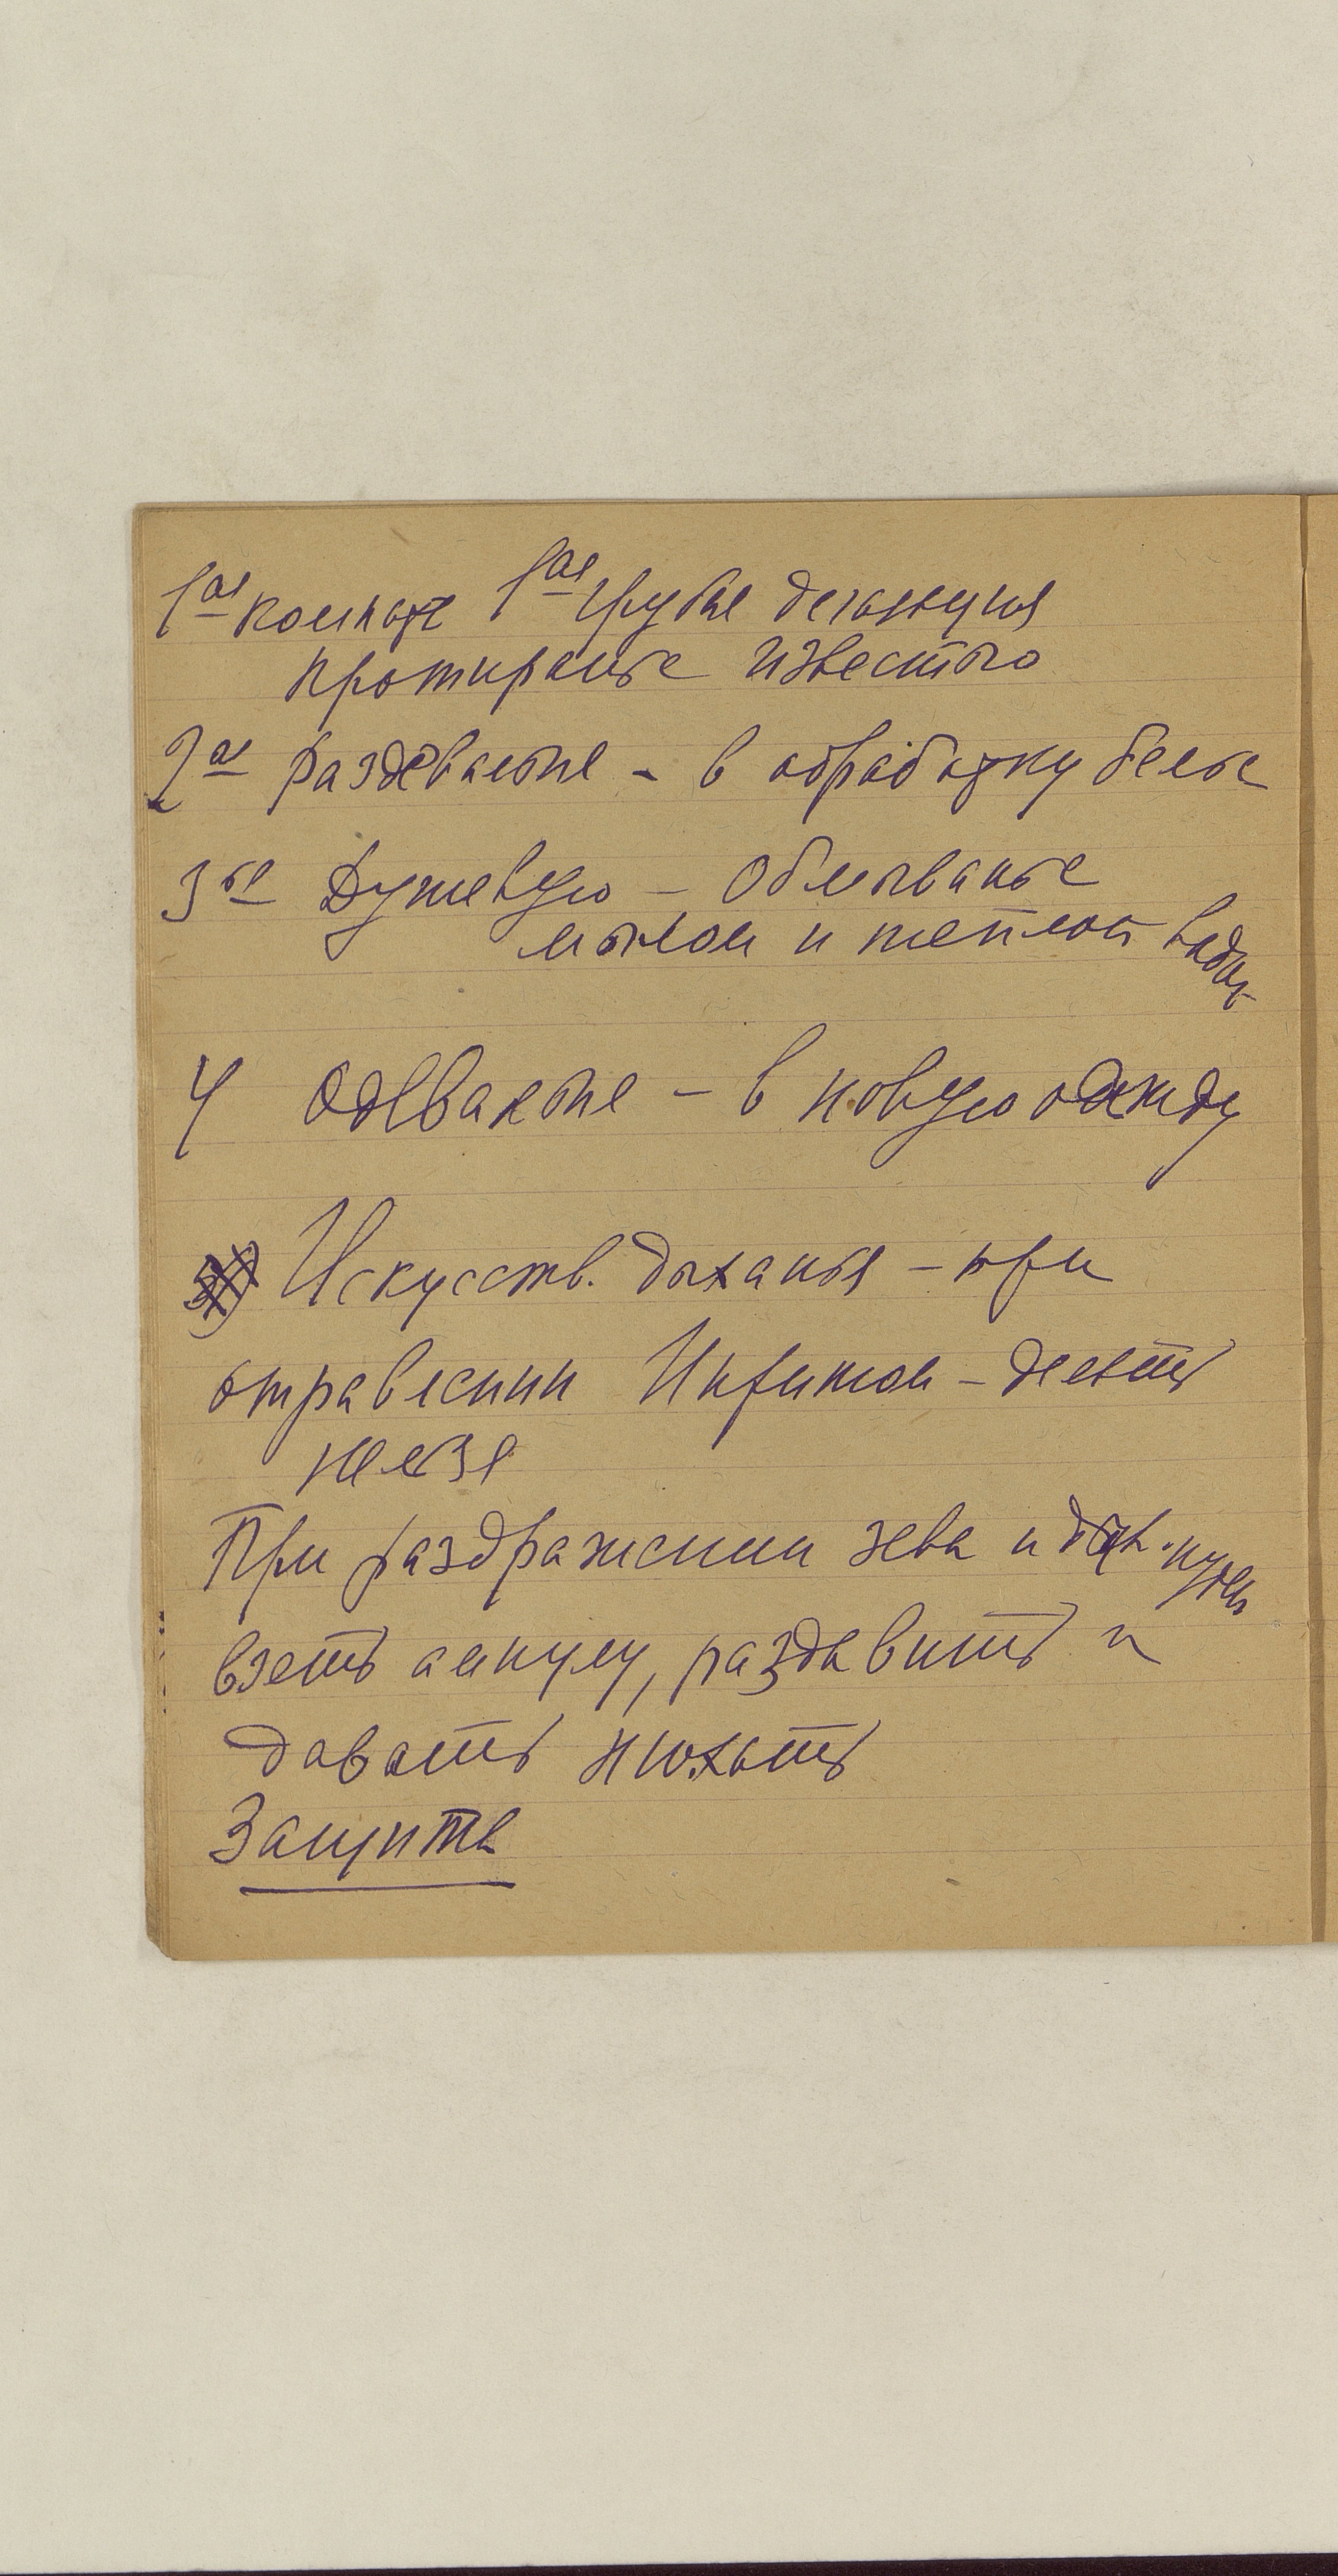 1ая комната 1ая грубая дегазация
протиранье известью
2ая раздеванье - в обработку белье
3ья Душевую - Обмыванье
мылом и теплой водой
4 Одеванье - в новую одежду
Искусств. дыханья - при
отравлении Ипритом - делать
нельзя
При раздражении зева и дых. путей
взять ампулу, раздавить и
давать нюхать
Защита